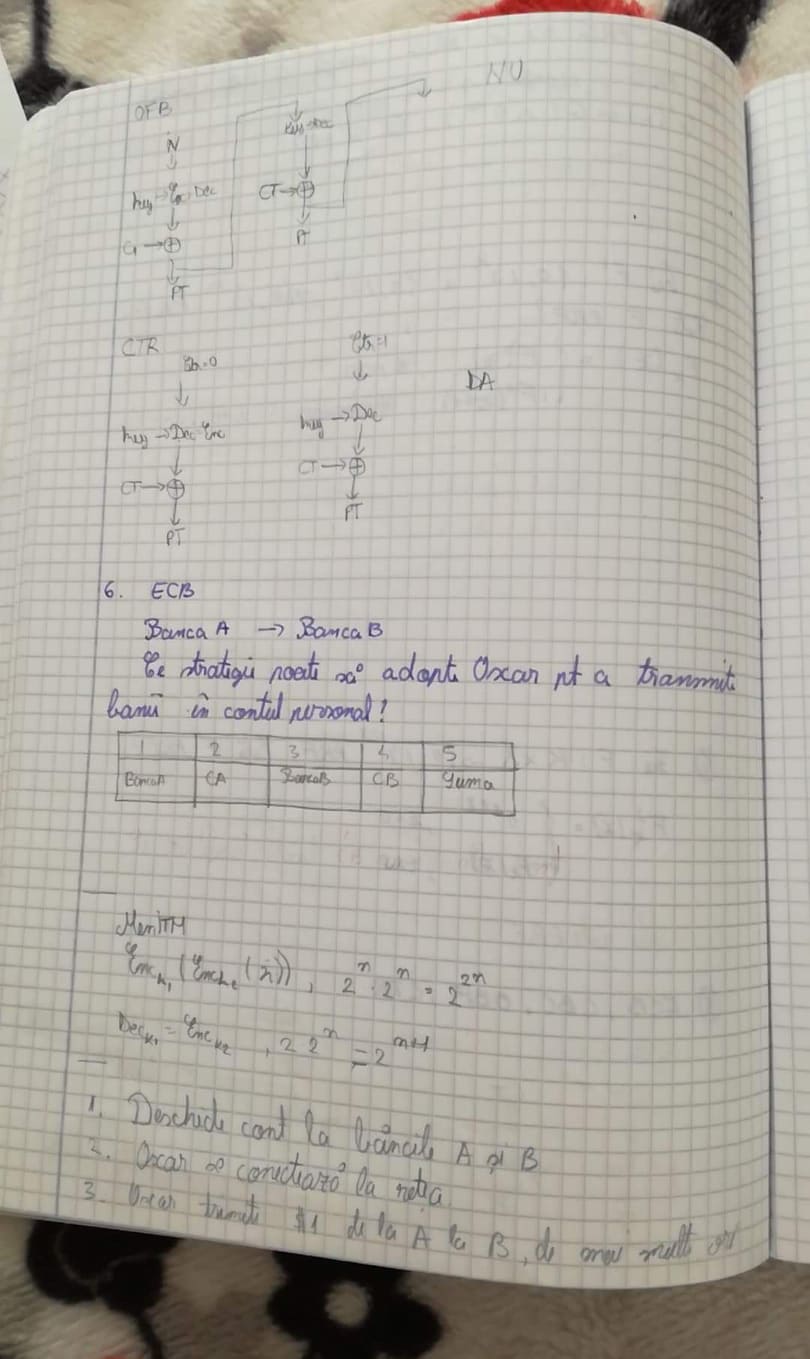 OFB
NU
N
key → Enc Dec
Dec
CT → ⊕
C1 → ⊕
PT
PT
CTR
Ctr=0
Ctr=1
DA
key → Dec Enc
key → Dec
CT → ⊕
CT → ⊕
PT
PT
6. ECB
Banca A → Banca B
Ce strategii poate să adopte Oscar pt a transmite
banii în contul personal?
1 2 3 4 5
BancaA CA BancaB CB Suma
MenITM
Enck1 (Enck2 (x)), 2^n · 2^n = 2^2n
Deck1 = Enck2, 2 2^n = 2^n+1
1. Deschide cont la băncile A și B
2. Oscar se conectează la rețea
3. Oscar trimite $1 de la A la B, de mai multe ori